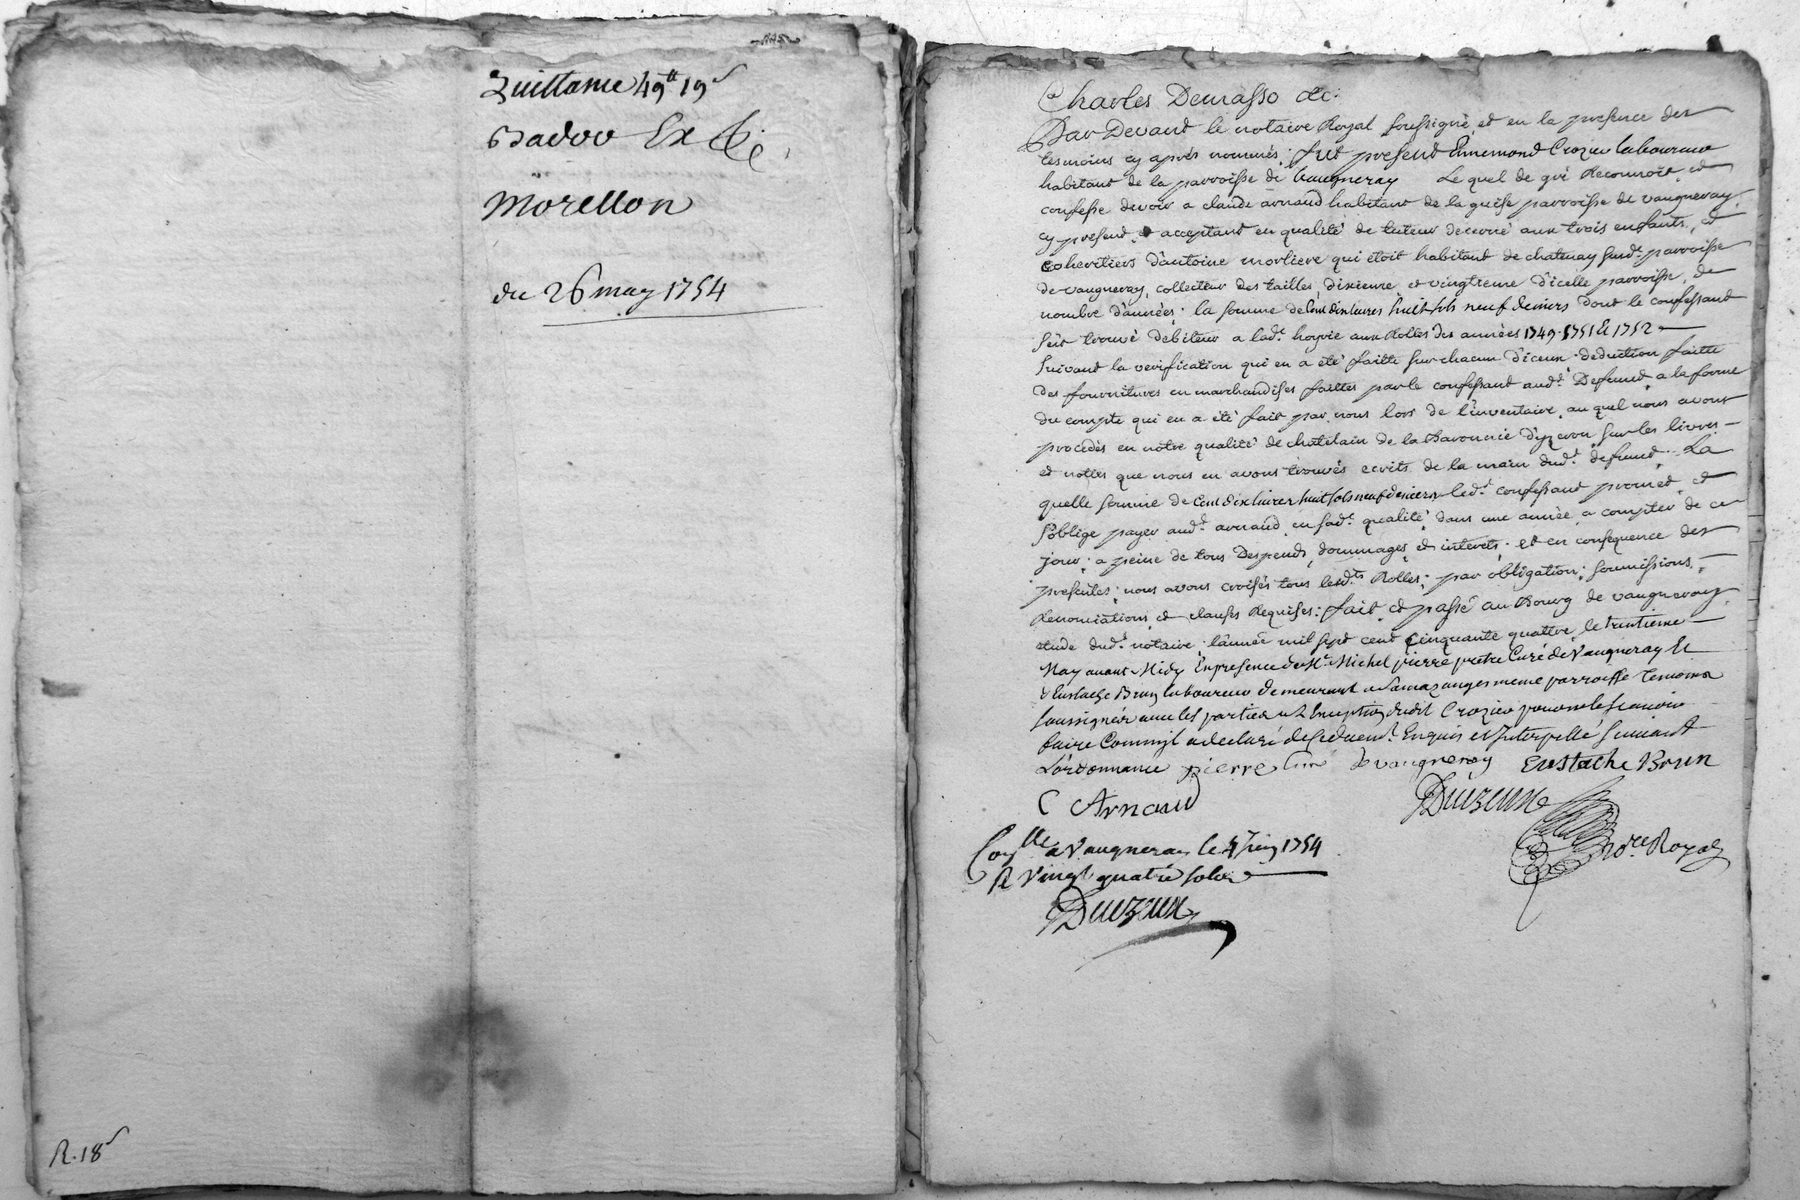 Quittance 49ᵗᵗ 19ˢ
Badoo Ex
Morellon
du 26 may 1754
R. 18ˢ
Charles Demasso &c:
Par Devant le notaire Royal soussigné, et en la presence des
tesmoins cy après nommés; fut present Ennemond Crozier laboureur
habitant de la parroisse de Vaugneray Le quel de gré Reconnoit, et
confesse devoir a claude arnaud habitant de la parroisse de vaugneray,
cy present, et acceptant en qualité de tuteur decerné aux trois enfants, et
coheritiers d'antoine morliere qui étoit habitant de chatenay susd.ᵉ parroisse
de vaugneray, collecteur des tailles, dixieme, et vingtieme d'icelle parroisse, de
nombre d'années; la somme de Cent dix livres huit sols neuf deniers dont le confessant
s'est trouvé débiteur a lad.ᵉ hoyrie aux Rolles des années 1749. 1751 & 1752
suivant la verification qui en a été faitte sur chacun d'iceux deduction faitte
des fournitures en marchandises faittes par le confessant aud.ᵗ Defunct, a la forme
du compte qui en a été fait par nous lors de l'inventaire, au quel nous avons
procédés en notre qualité de chatelain de la Baronnie d'yzeron sur les livres
et nottes que nous en avons trouvés ecrits de la main dud.ᵗ defunct. La
quelle somme de Cent dix livres huit sols neuf deniers led.ᵗ confessant promet, et
s'oblige payer aud.ᵗ arnaud en sad.ᵉ qualité, dans une année, a compter de ce
jour; a peine de tous Despends, dommages, et interets; et en consequence des
presentes; nous avons croisés tous lesd.ᵗˢ Rolles; par obligation; soumissions,
Renonciations, et clauses Requises: fait, et passé au Bourg de vaugneray,
etude dud.ᵗ notaire, l'année mil sept cent cinquante quatre, le trentieme
May avant Midy En presence de M.ʳ Michel pierre prêtre Curé de Vaugneray &
d'Eustache Brun laboureur demeurant a meme parroisse temoins
soussignés avec les parties a l'Exception dudit Crozier pour ne le scavoir
faire Comm'il a declaré de ce Enquis et Interpellé suivant
L'ordonnance pierre Curé de vaugneray Eustache Brun
C Arnaud
Not.ʳᵉ Royal
Con.ˡˡᵉ a Vaugneray le 4 juin 1754
R Vingt quatre sols